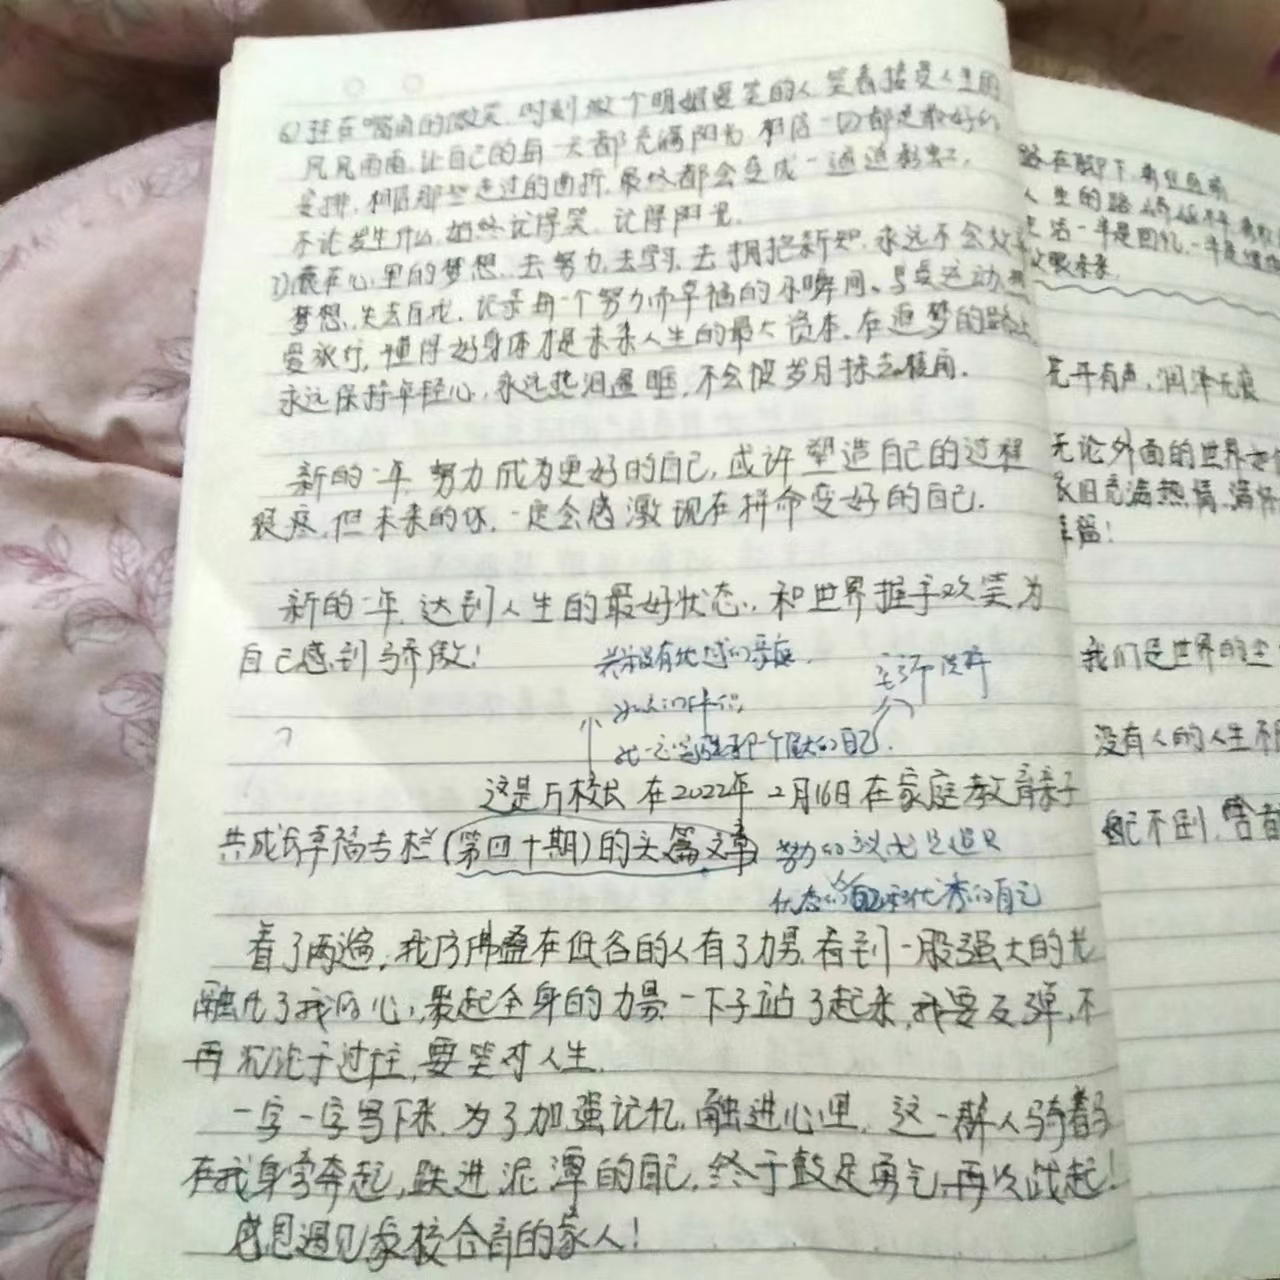 6) 挂在嘴角的微笑.时刻做个明媚爱笑的人 笑着接受人生的
风风雨雨,让自己的每一天都充满阳光 相信一切都是最好的
安排.相信那些走过的曲折.最终都会变成一道道彩虹.
不论发生什么,始终记得笑.记得阳光.
7)藏在心里的梦想.去努力,去学习.去拥抱新知.永远不会放弃
梦想.失去自我.记录每一个努力而幸福的小瞬间.
爱旅行,懂得好身体才是未来人生的最大资本.在追梦的路上
永远保持年轻心,永远热泪盈眶.不会被岁月抹去棱角.
新的一年 努力成为更好的自己,或许 塑造自己的过程
很疼,但未来的你.一定会感激现在拼命变好的自己.
新的一年.达到人生的最好状态..和世界握手欢笑为
自己感到骄傲!
这是万校长在2022年 2月16日在家庭教育亲子
共成长幸福专栏(第四十期)的头篇文章
看了两遍,我仿佛叠在低谷的人有了力量.看到一股强大的光
融化了我的心,聚起全身的力量 一下子站了起来,我要反弹,不
再沉沦于过往,要笑对人生.
一字一字写下来.为了加强记忆,融进心里.这一群人骑着马
在我身旁奔起,跌进泥潭的自己,终于鼓足勇气,再次战起!
感恩遇见家校合育的家人!
路在脚下,
人生的路
生活一半是回忆,一半是
放眼未来.
花开有声,润泽无痕
无论外面的世界
依旧充满热情,满怀
幸福!
我们是世界的
没有人的人生不
配不到,啥都